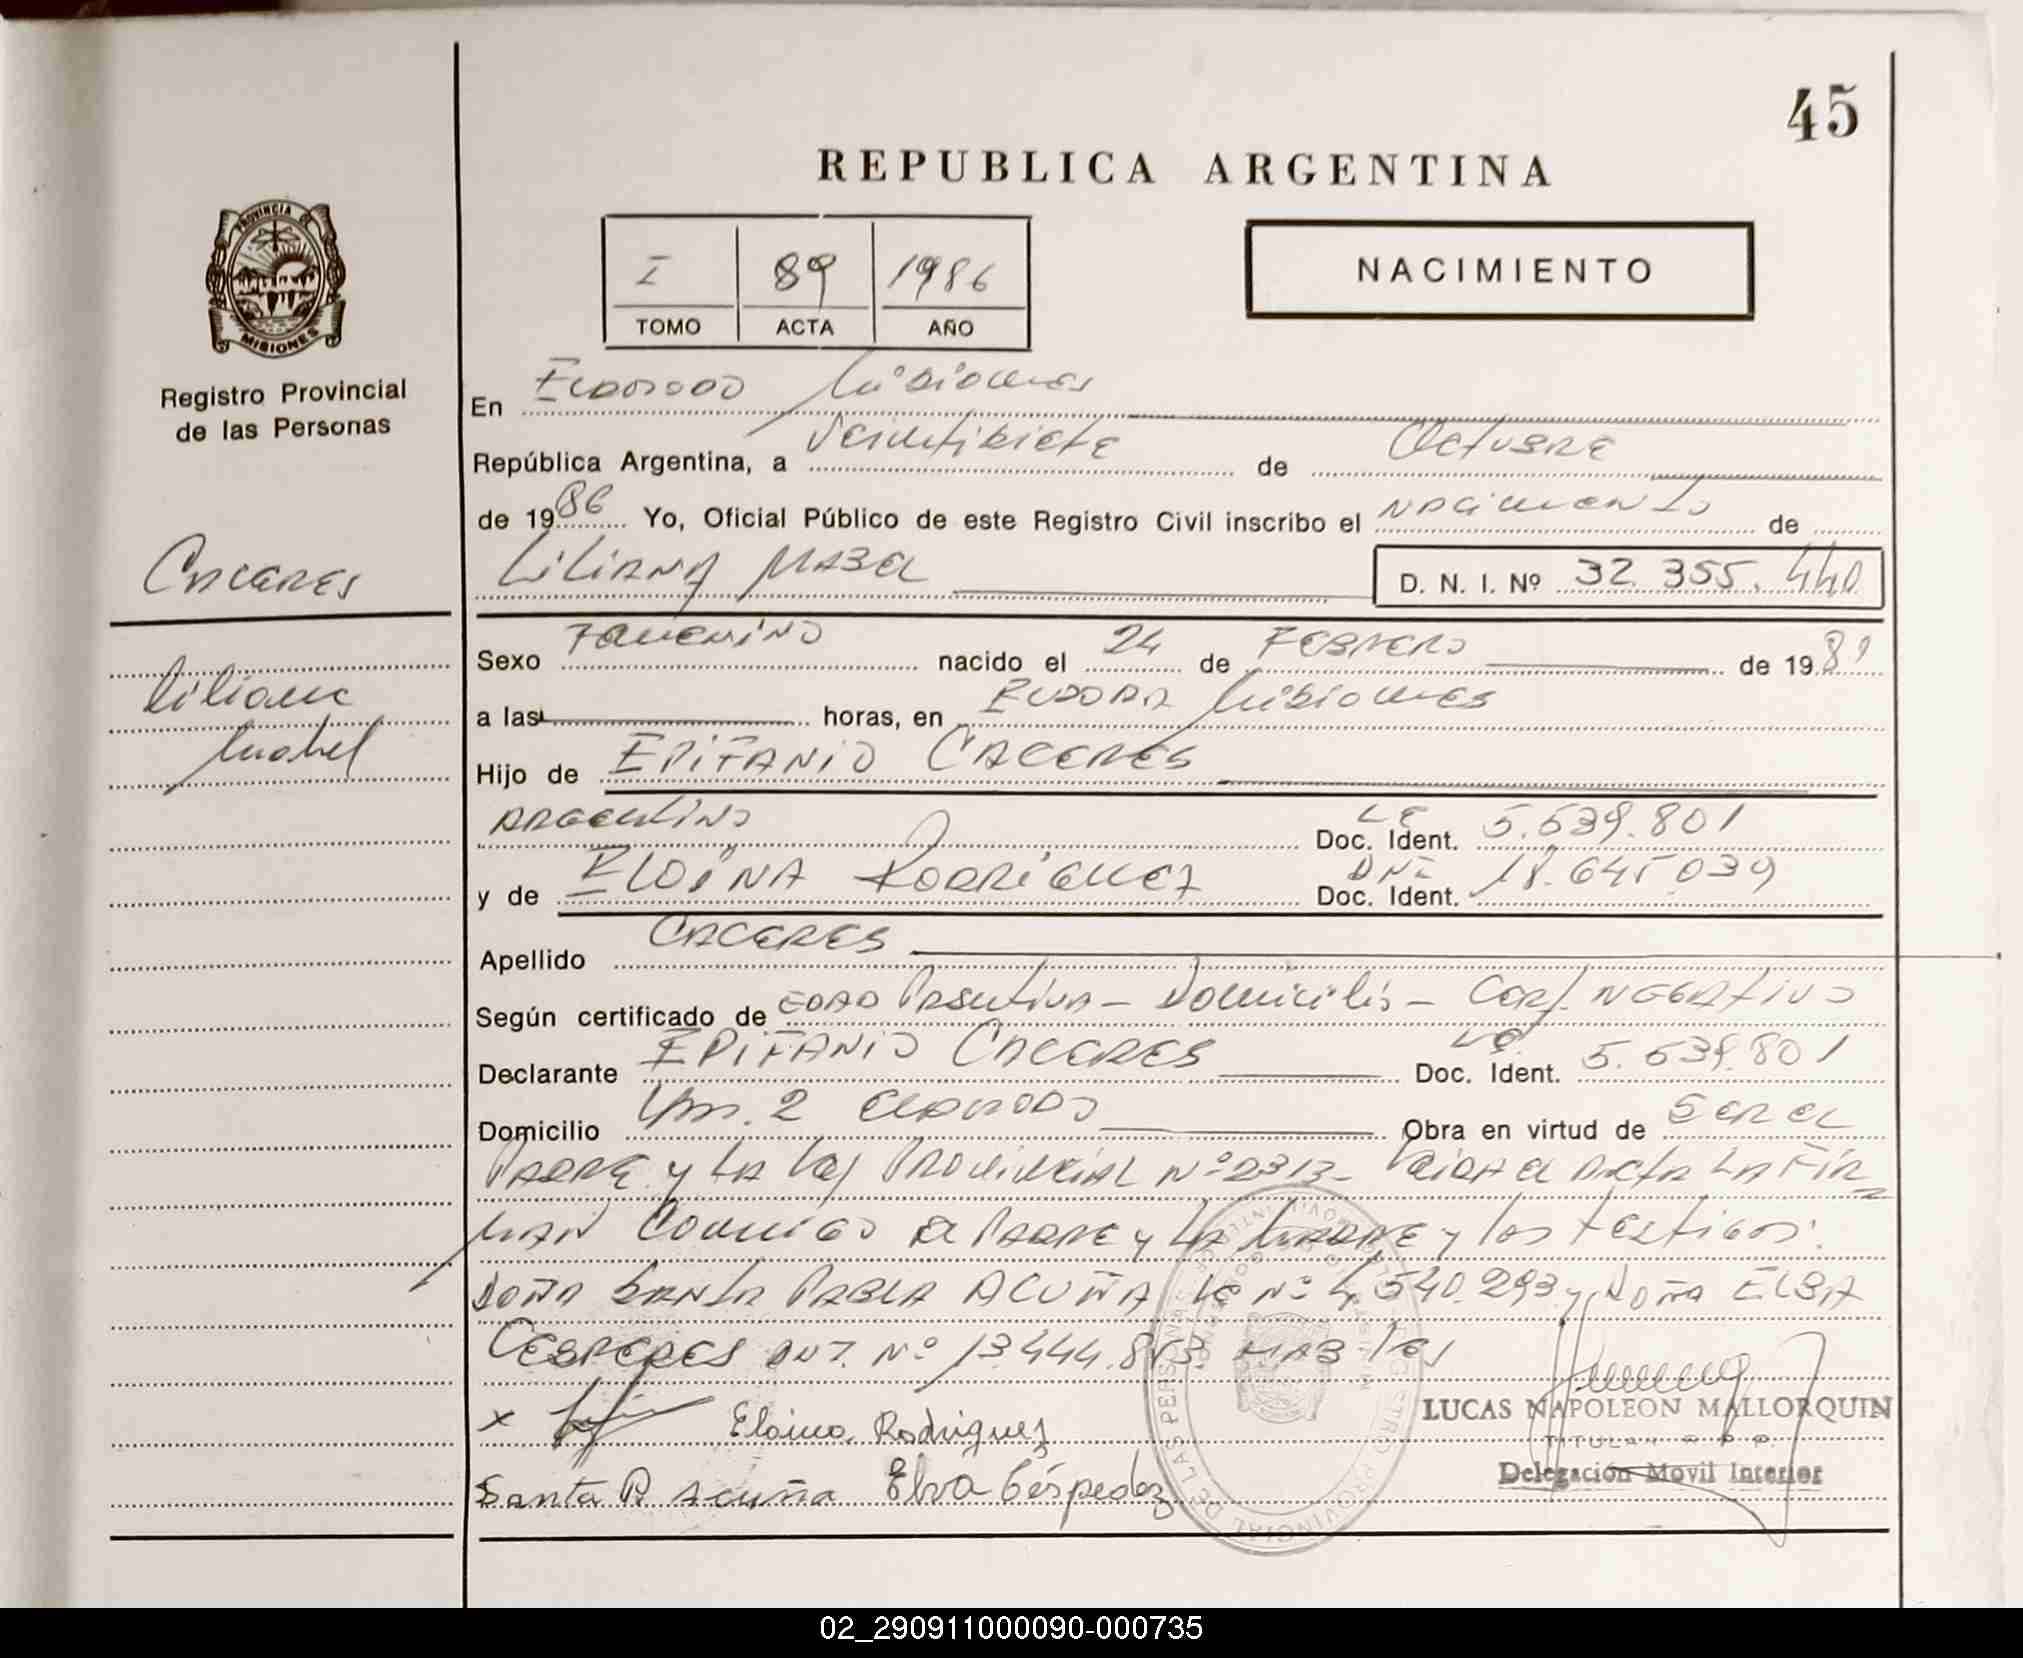 45
REPUBLICA ARGENTINA
I 89 1986
TOMO ACTA AÑO
NACIMIENTO
PROVINCIA DE
MISIONES
Registro Provincial
de las Personas
CACERES
Liliana
Mabel
En ELDORADO Misiones
República Argentina, a Veintisiete de OCTUBRE
de 1986 Yo, Oficial Público de este Registro Civil inscribo el NACIMIENTO de
LILIANA MABEL D. N. I. Nº 32.355.440
Sexo FEMENINO nacido el 24 de FEBRERO de 1981
a las horas, en Misiones
Hijo de EPIFANIO CACERES
ARGENTINO LE Doc. Ident. 5.639.801
y de ELOINA RODRIGUEZ DNI Doc. Ident. 18.645.039
Apellido CACERES
Según certificado de EDAD - Domicilio - NEGATIVO
Declarante EPIFANIO CACERES LE Doc. Ident. 5.639.801
Domicilio Km. 2 ELDORADO Obra en virtud de SER EL
PADRE y LA Ley PROVINCIAL Nº 2313- Leida el Acta LA FIR
MAN Conmigo el PADRE y LA MADRE y los testigos:
DOÑA SANTA PABLA ACUÑA LE Nº 4.540.293 y DOÑA ELBA
CESPEDES DNI. Nº 13.444.853
x Eloina Rodriguez
Santa P. Acuña Elva Céspedez
LUCAS NAPOLEON MALLORQUIN
TITULAR R P P
Delegación Movil Interior
02_290911000090-000735